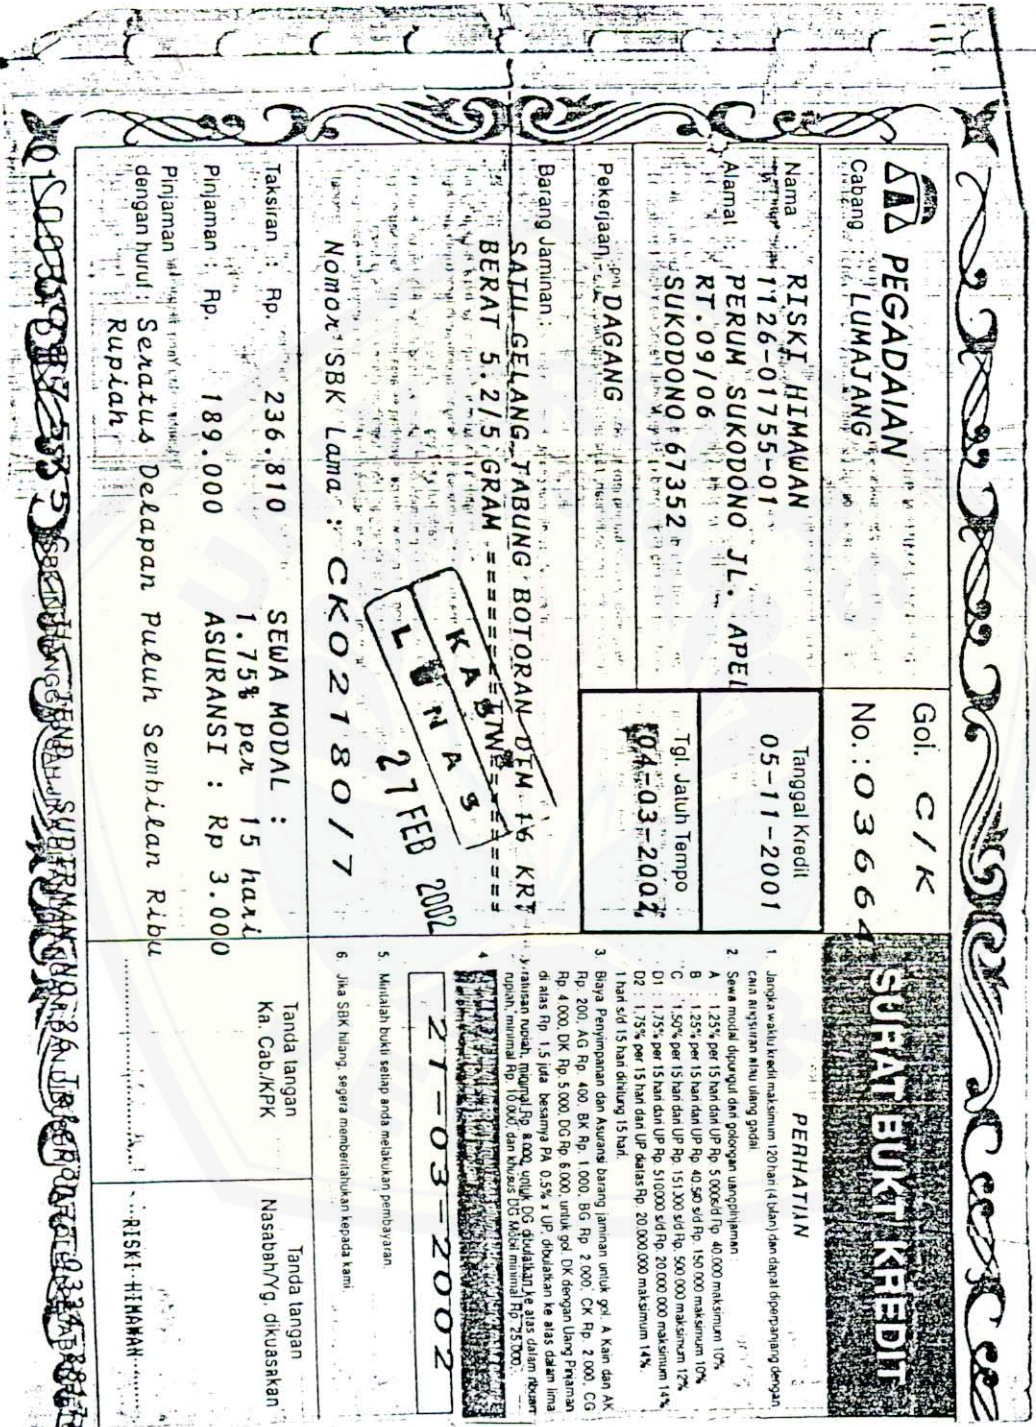 PEGADAIAN
Cabang : LUMAJANG
Gol. C/K
No.: 03664
SURAT BUKTI KREDIT
Nama : RISKI HIMAWAN
1126-01755-01
Alamat : PERUM SUKODONO JL. APEL
RT.09/06
SUKODONO 67352
Tanggal Kredit
05-11-2001
Pekerjaan : DAGANG
Tgl. Jatuh Tempo
04-03-2002
Barang Jaminan :
SATU GELANG TABUNG BOTORAN DTM 16 KRT
BERAT 5.2/5 GRAM
Nomor SBK Lama : CK02180/7
LUNAS
27 FEB 2002
Taksiran : Rp. 236.810
SEWA MODAL :
1.75% per 15 hari
Pinjaman : Rp. 189.000
ASURANSI : Rp 3.000
Pinjaman
dengan huruf : Seratus Delapan Puluh Sembilan Ribu
Rupiah
PERHATIAN
1. Jangka waktu kredit maksimum 120 hari (4 bulan) dan dapat diperpanjang dengan
cara angsuran atau ulang gadai.
2. Sewa modal dipungut dari golongan uang pinjaman :
A : 1.25% per 15 hari dari UP Rp 5.000 s/d Rp. 40.000 maksimum 10%
B : 1.25% per 15 hari dari UP Rp 40.500 s/d Rp. 150.000 maksimum 10%
C : 1.50% per 15 hari dari UP Rp. 151.000 s/d Rp. 500.000 maksimum 12%
D1 : 1,75% per 15 hari dari UP Rp 510.000 s/d Rp 20.000.000 maksimum 14%
D2 : 1,75% per 15 hari dari UP diatas Rp. 20.000.000 maksimum 14%.
1 hari s/d 15 hari dihitung 15 hari.
3. Biaya Penyimpanan dan Asuransi barang jaminan untuk gol. A Kain dan AK
Rp. 200, AG Rp. 400, BK Rp. 1.000, BG Rp. 2.000, CK Rp. 2.000, CG
Rp 4.000, DK Rp. 5.000, DG Rp 6.000, untuk gol. DK dengan Uang Pinjaman
di atas Rp 1,5 juta besarnya PA 0.5% x UP, dibulatkan ke atas dalam lima
ratusan rupiah, minimal Rp. 8.000, untuk DG dibulatkan ke atas dalam ribuan
rupiah, minimal Rp. 10.000, dan khusus DG Mobil minimal Rp. 25.000,
4
21-03-2002
5. Mintalah bukti setiap anda melakukan pembayaran.
6. Jika SBK hilang, segera memberitahukan kepada kami.
Tanda tangan
Ka. Cab./KPK
Tanda tangan
Nasabah/Yg. dikuasakan
RISKI HIMAWAN